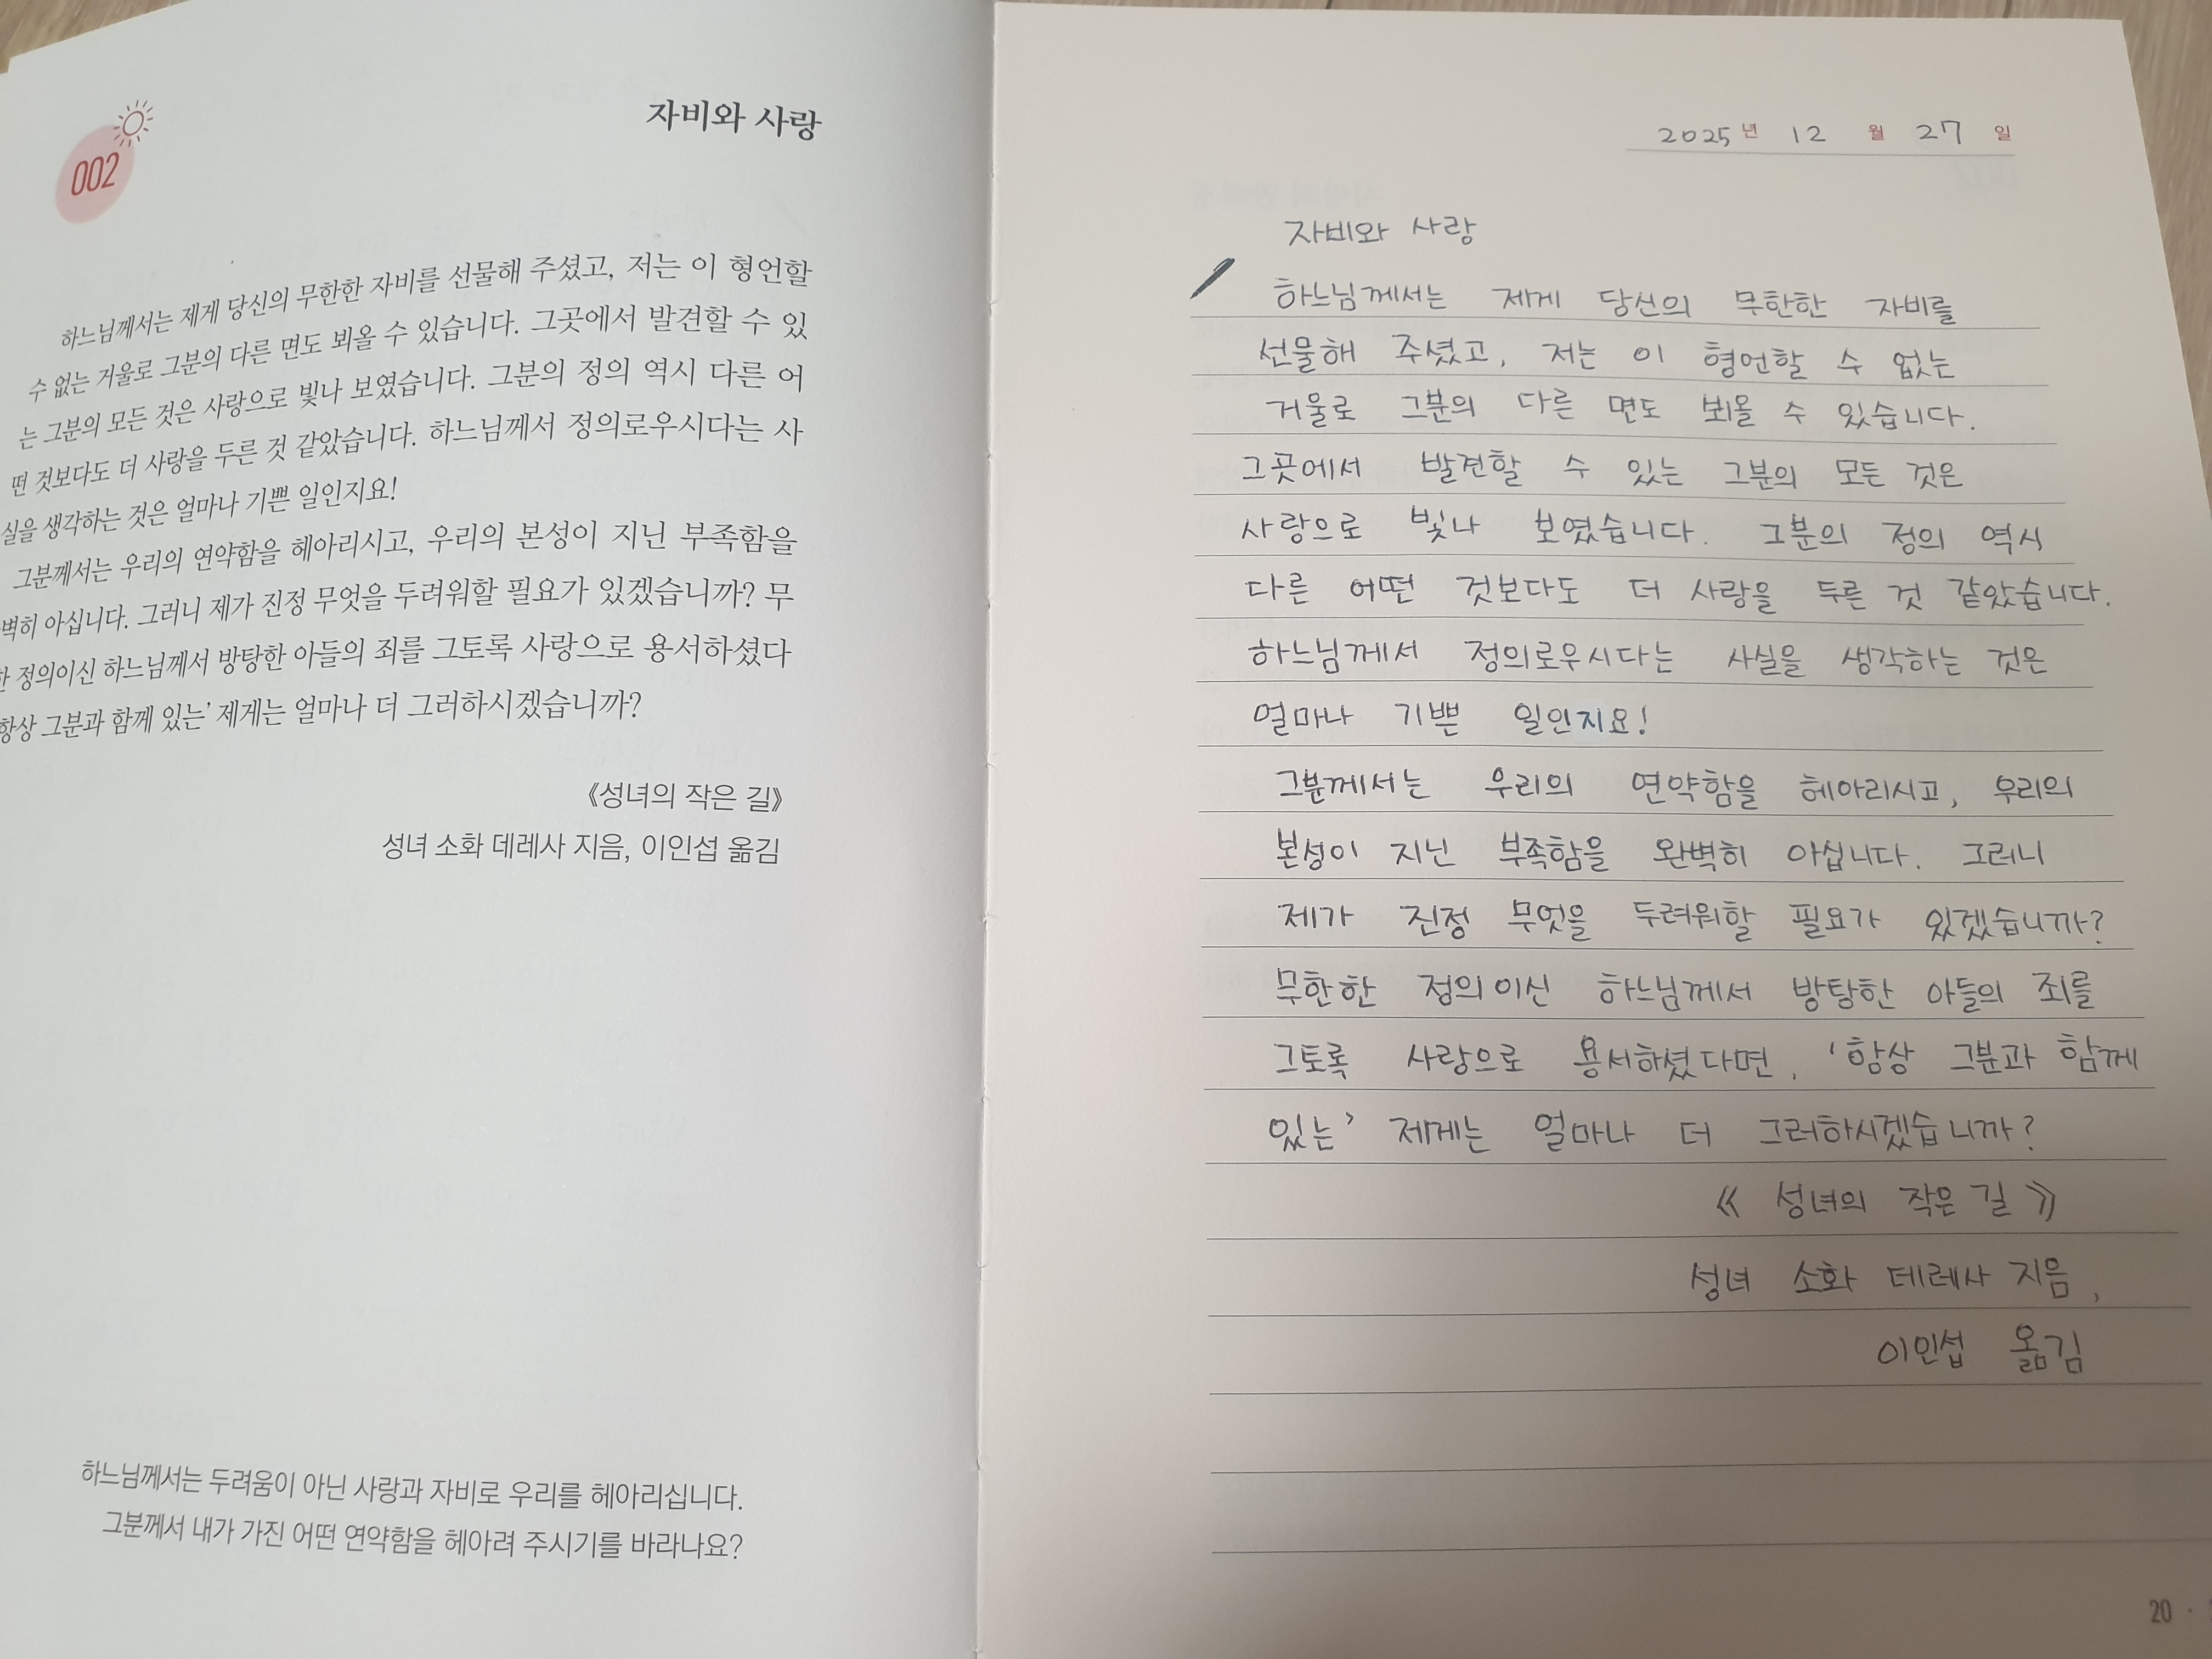 002
자비와 사랑
하느님께서는 제게 당신의 무한한 자비를 선물해 주셨고, 저는 이 형언할
수 없는 거울로 그분의 다른 면도 뵈올 수 있습니다. 그곳에서 발견할 수 있
는 그분의 모든 것은 사랑으로 빛나 보였습니다. 그분의 정의 역시 다른 어
떤 것보다도 더 사랑을 두른 것 같았습니다. 하느님께서 정의로우시다는 사
실을 생각하는 것은 얼마나 기쁜 일인지요!
그분께서는 우리의 연약함을 헤아리시고, 우리의 본성이 지닌 부족함을
벽히 아십니다. 그러니 제가 진정 무엇을 두려워할 필요가 있겠습니까? 무
한 정의이신 하느님께서 방탕한 아들의 죄를 그토록 사랑으로 용서하셨다
항상 그분과 함께 있는’ 제게는 얼마나 더 그러하시겠습니까?
《성녀의 작은 길》
성녀 소화 데레사 지음, 이인섭 옮김
하느님께서는 두려움이 아닌 사랑과 자비로 우리를 헤아리십니다.
그분께서 내가 가진 어떤 연약함을 헤아려 주시기를 바라나요?
2025년 12 월 27 일
자비와 사랑
하느님께서는 제게 당신의 무한한 자비를
선물해 주셨고, 저는 이 형언할 수 없는
거울로 그분의 다른 면도 뵈올 수 있습니다.
그곳에서 발견할 수 있는 그분의 모든 것은
사랑으로 빛나 보였습니다. 그분의 정의 역시
다른 어떤 것보다도 더 사랑을 두른 것 같았습니다.
하느님께서 정의로우시다는 사실을 생각하는 것은
얼마나 기쁜 일인지요!
그분께서는 우리의 연약함을 헤아리시고, 우리의
본성이 지닌 부족함을 완벽히 아십니다. 그러니
제가 진정 무엇을 두려워할 필요가 있겠습니까?
무한한 정의이신 하느님께서 방탕한 아들의 죄를
그토록 사랑으로 용서하셨다면, ‘항상 그분과 함께
있는’ 제게는 얼마나 더 그러하시겠습니까?
《 성녀의 작은 길 》
성녀 소화 데레사 지음,
이인섭 옮김
20 ·